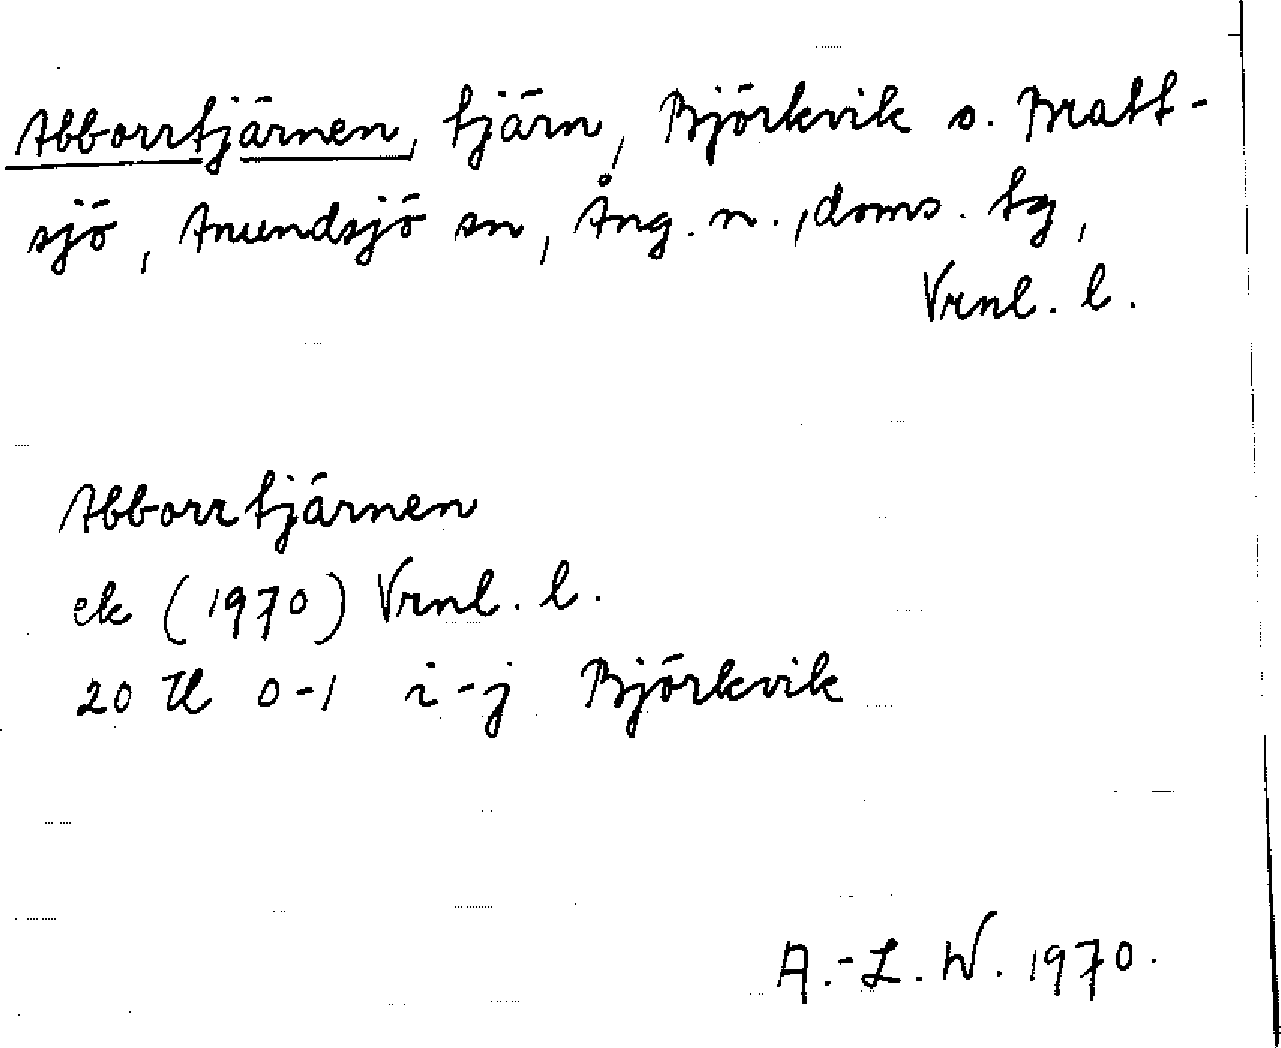 Abborrtjärnen, tjärn, Björkvik o. Bratt-
sjö, Anundsjö sn, Ång. n., doms. tg,
Vrnl. l.
Abborrtjärnen
ek (1970) Vrnl. l.
20 H 0-1 i-j Björkvik
A.-L. W. 1970.